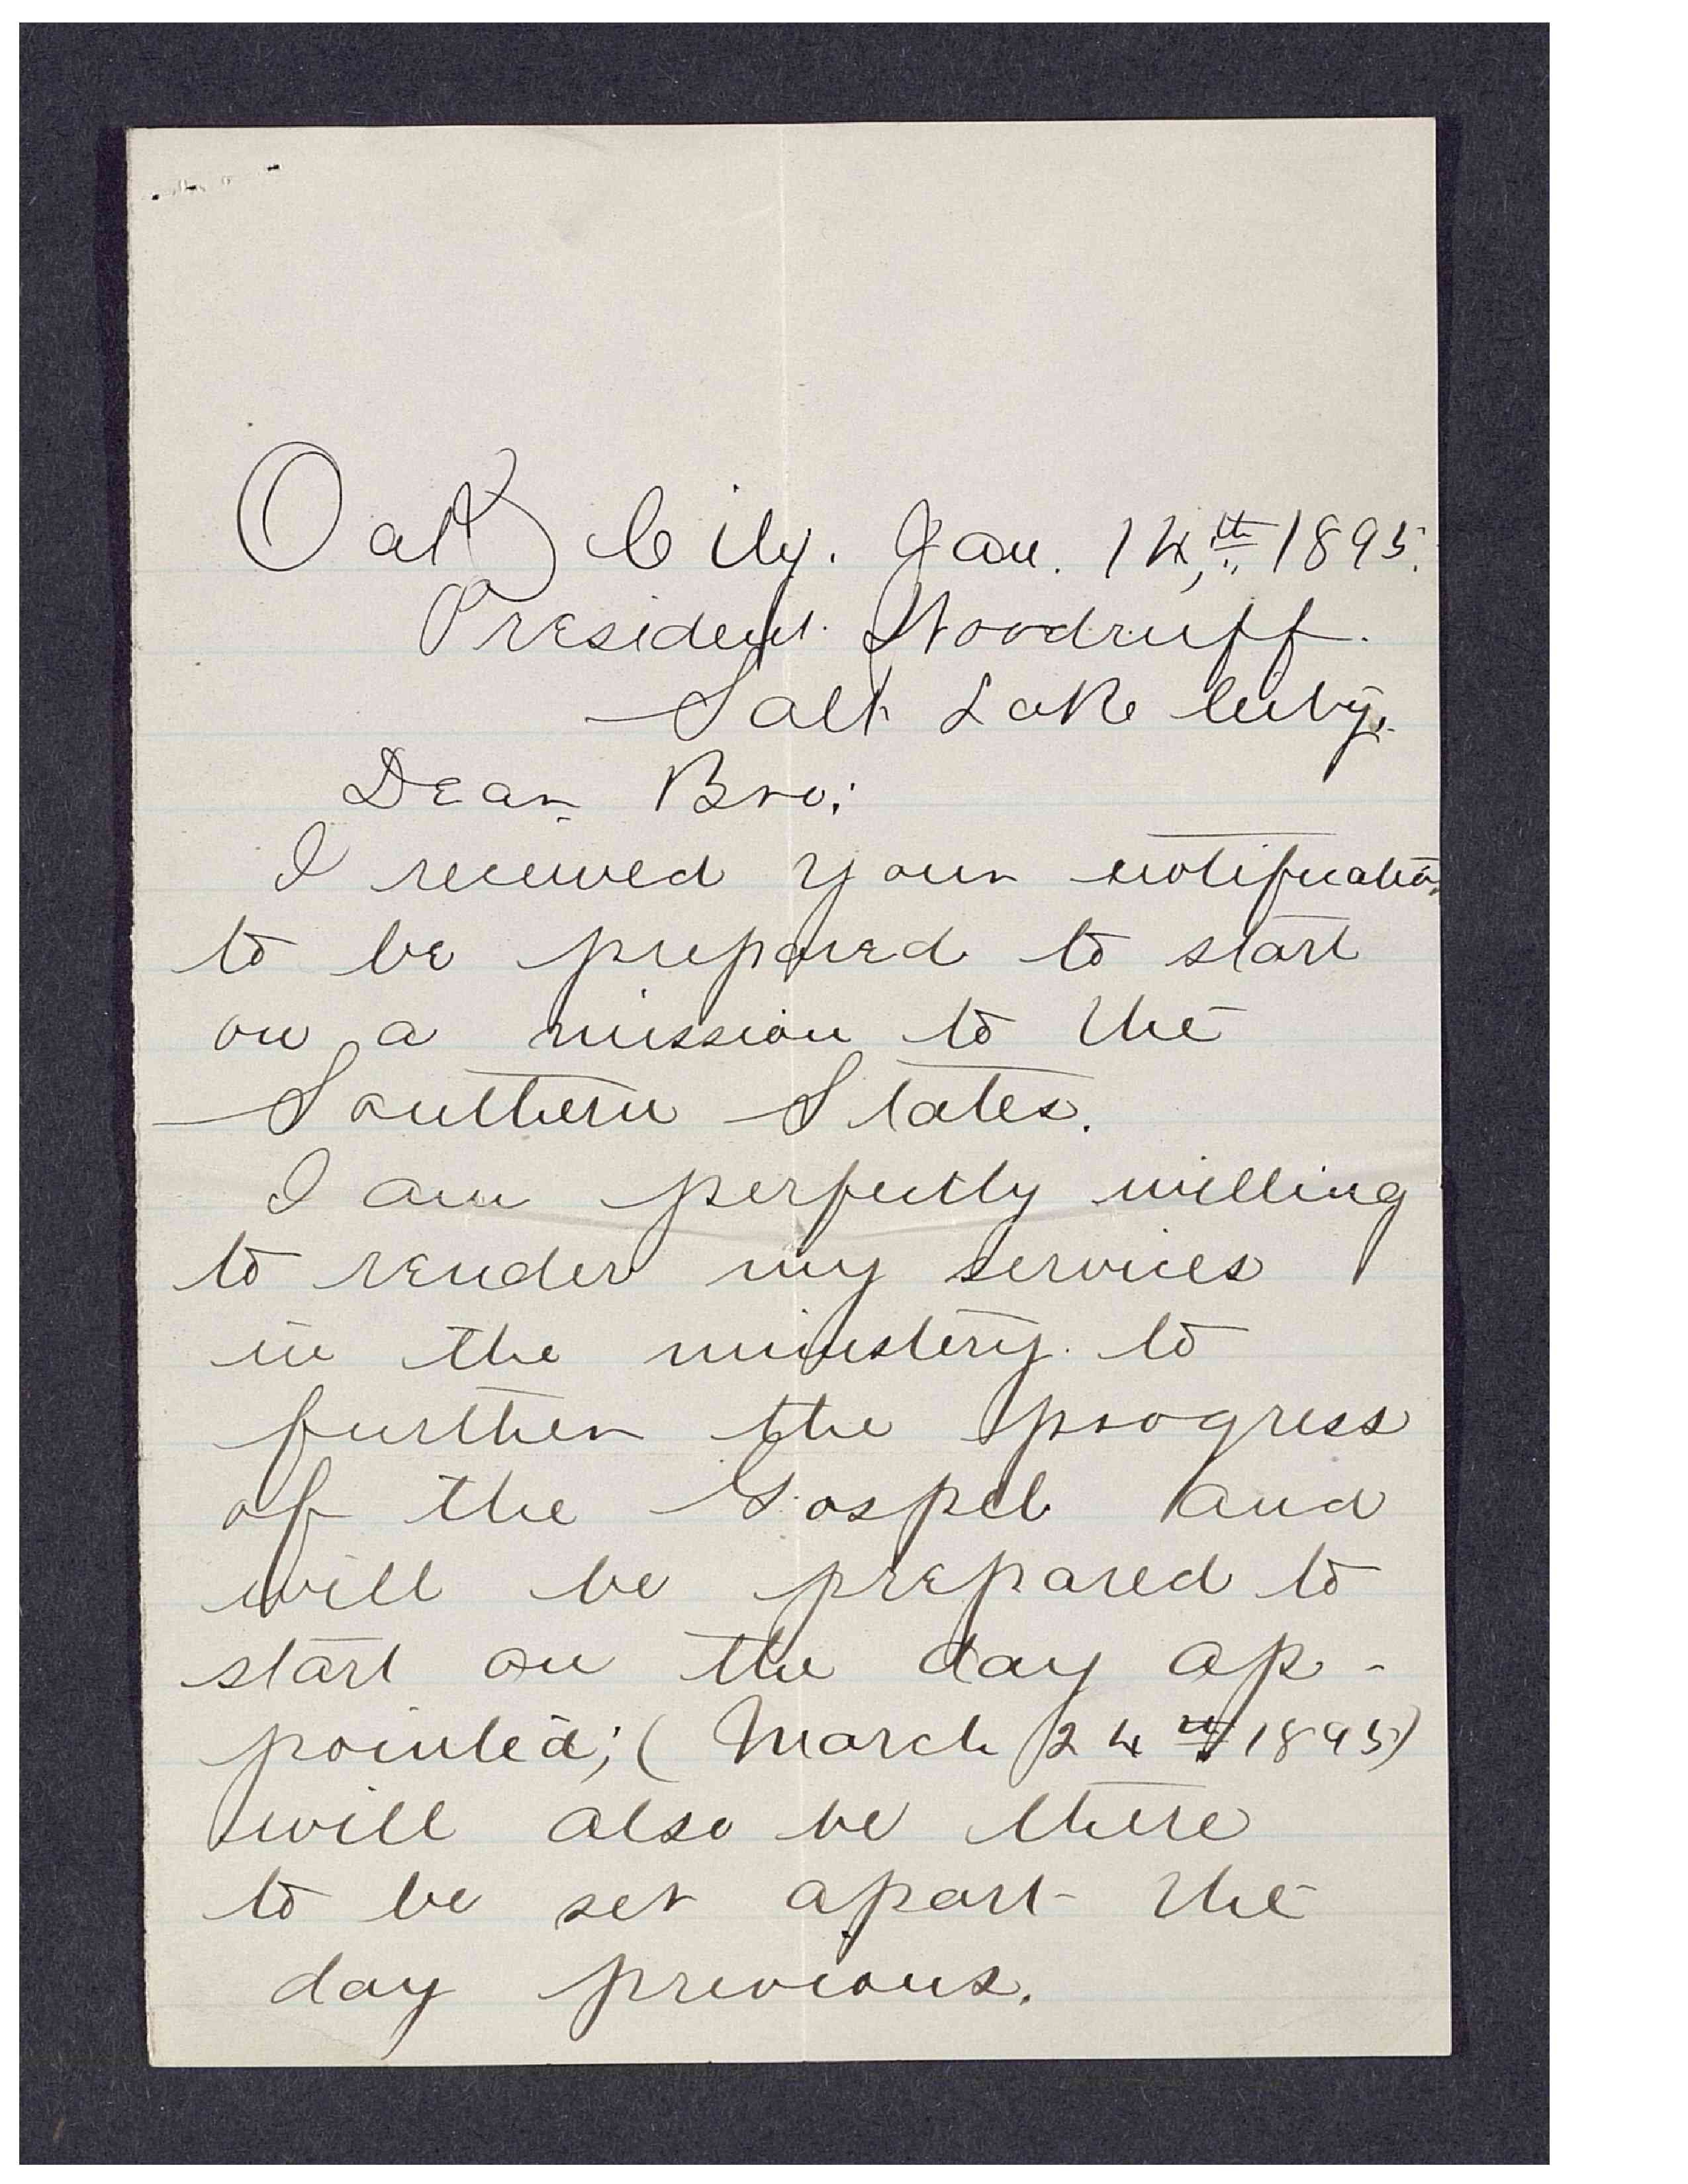 Oak City. Jan. 14,th 1895.
President Woodruff.
Salt Lake City.
Dear Bro:
I received your notification
to be prepared to start
on a mission to the
Southern States.
I am perfectly willing
to render my services
in the ministery to
further the progress
of the Gospel and
will be prepared to
start on the day ap-
pointed; (March 24th 1895)
will also be there
to be set apart the
day previous.